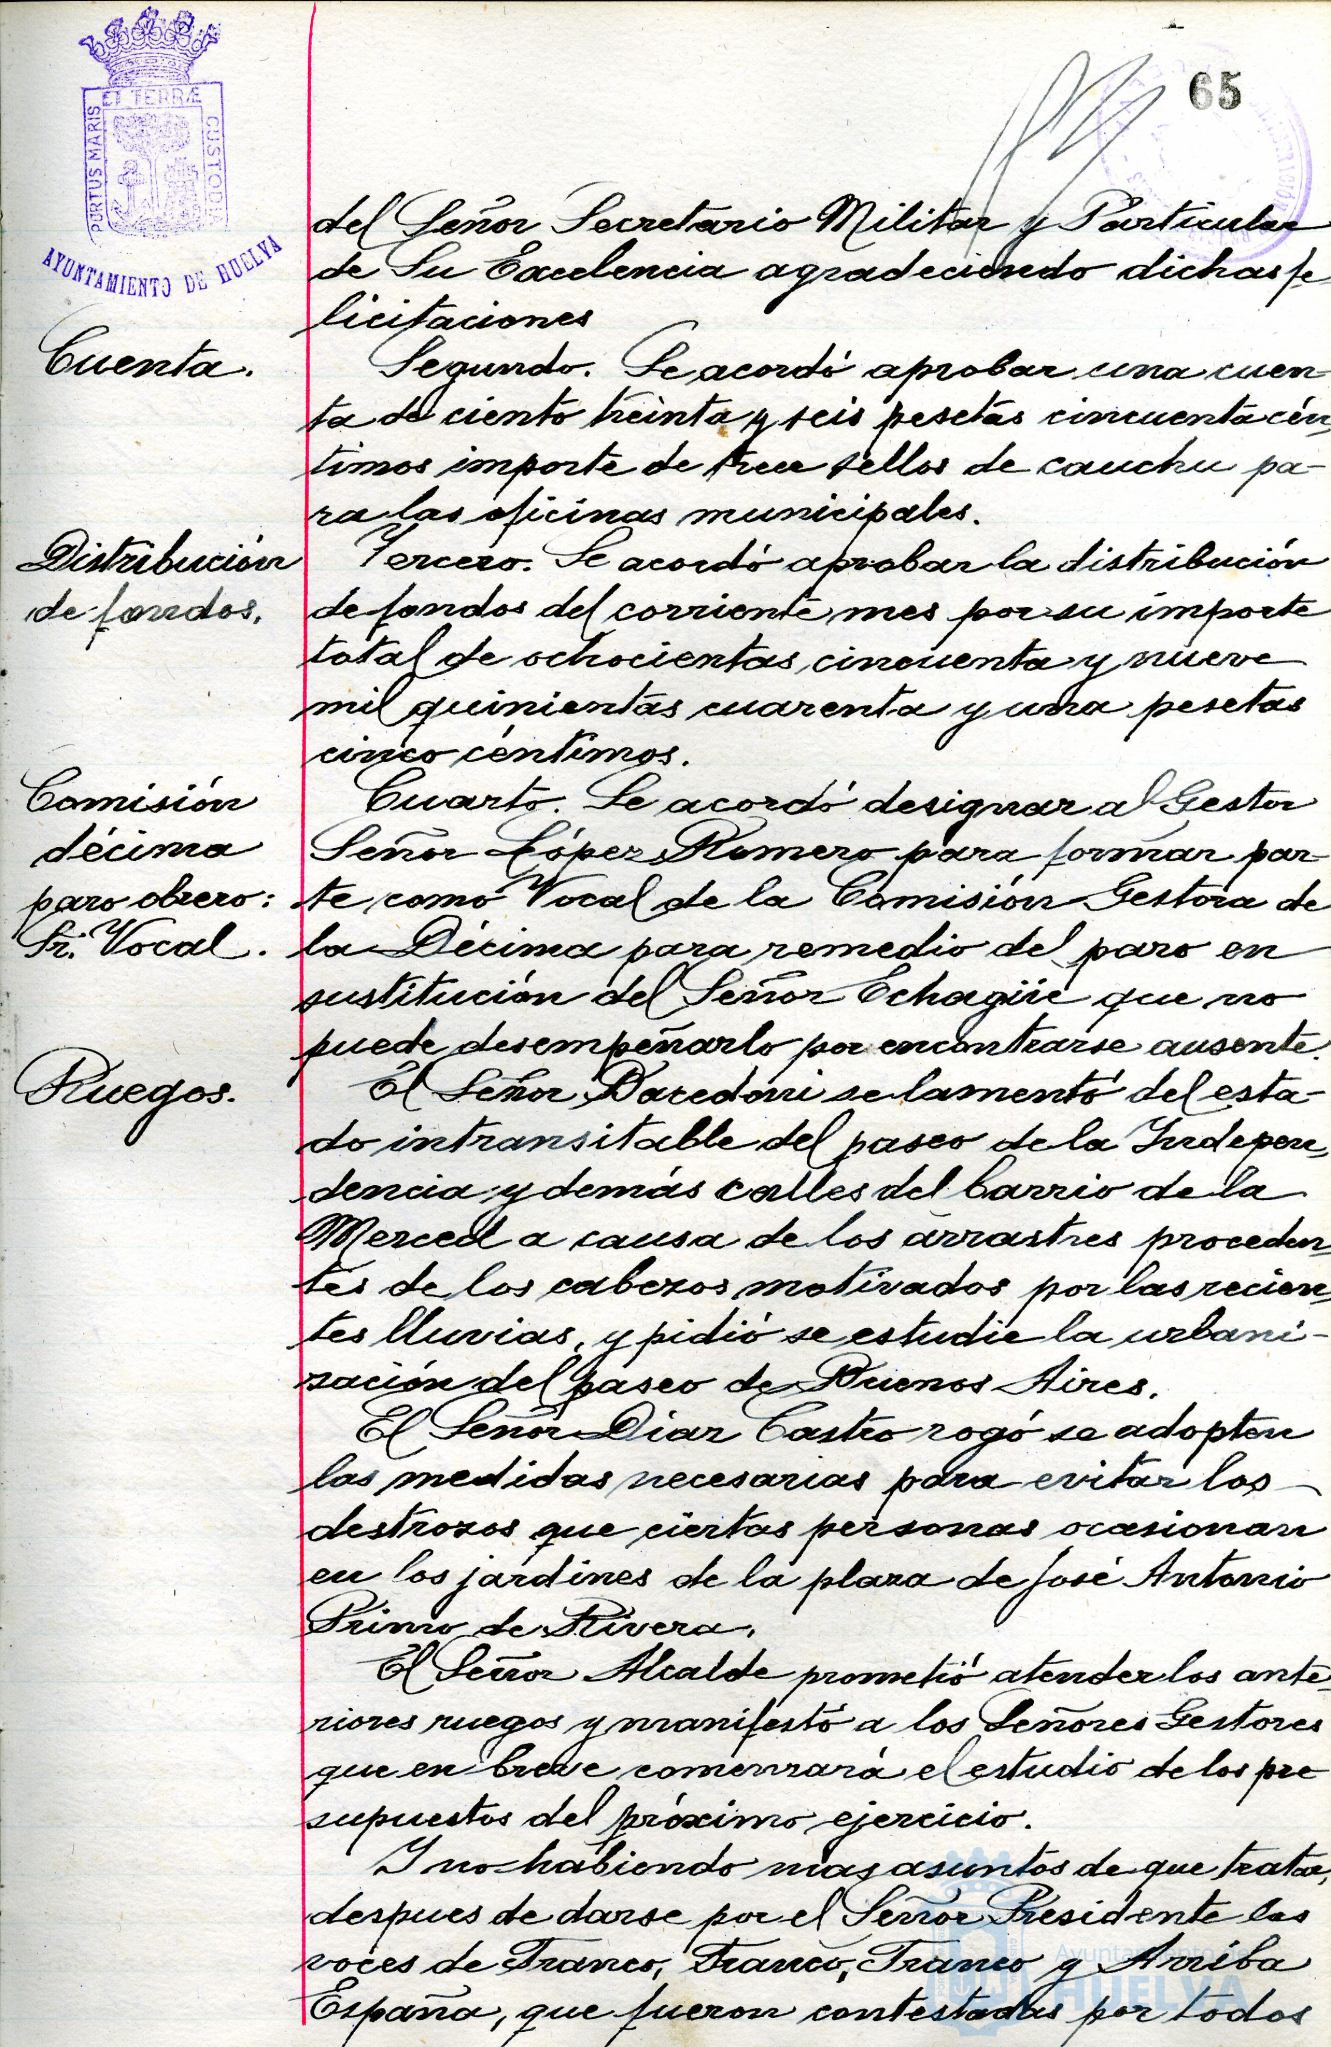 ET TERRÆ
PORTUS MARIS
CUSTODIA
AYUNTAMIENTO DE HUELVA
65
del Señor Secretario Militar y Particular
de Su Excelencia agradeciendo dichas fe
licitaciones
Cuenta.
Segundo. Se acordó aprobar una cuen-
ta de ciento treinta y seis pesetas cincuenta cén-
timos importe de trece sellos de cauchu pa-
ra las oficinas municipales.
Distribución
de fondos.
Tercero. Se acordó aprobar la distribución
de fondos del corriente mes por su importe
total de ochocientas cincuenta y nueve
mil quinientas cuarenta y una pesetas
cinco céntimos.
Comisión
décima
paro obrero:
Sr. Vocal.
Cuarto. Se acordó designar al Gestor
Señor López Romero para formar par-
te como Vocal de la Comisión Gestora de
la Décima para remedio del paro en
sustitución del Señor Echagüe que no
puede desempeñarlo por encontrarse ausente.
Ruegos.
El Señor se lamentó del esta-
do intransitable del paseo de la Indepen-
dencia y demás calles del barrio de la
Merced a causa de los arrastres proceden-
tes de los cabezos motivados por las recien-
tes lluvias, y pidió se estudie la urbani-
zación del paseo de Buenos Aires.
El Señor Díaz Castro rogó se adopten
las medidas necesarias para evitar los
destrozos que ciertas personas ocasionan
en los jardines de la plaza de José Antonio
Primo de Rivera.
El Señor Alcalde prometió atender los ante-
riores ruegos y manifestó a los Señores Gestores
que en breve comenzará el estudio de los pre
supuestos del próximo ejercicio.
Y no habiendo mas asuntos de que tratar,
despues de darse por el Señor Presidente las
voces de Franco, Franco, Franco y Arriba
España, que fueron contestadas por todos
Ayuntamiento de
HUELVA